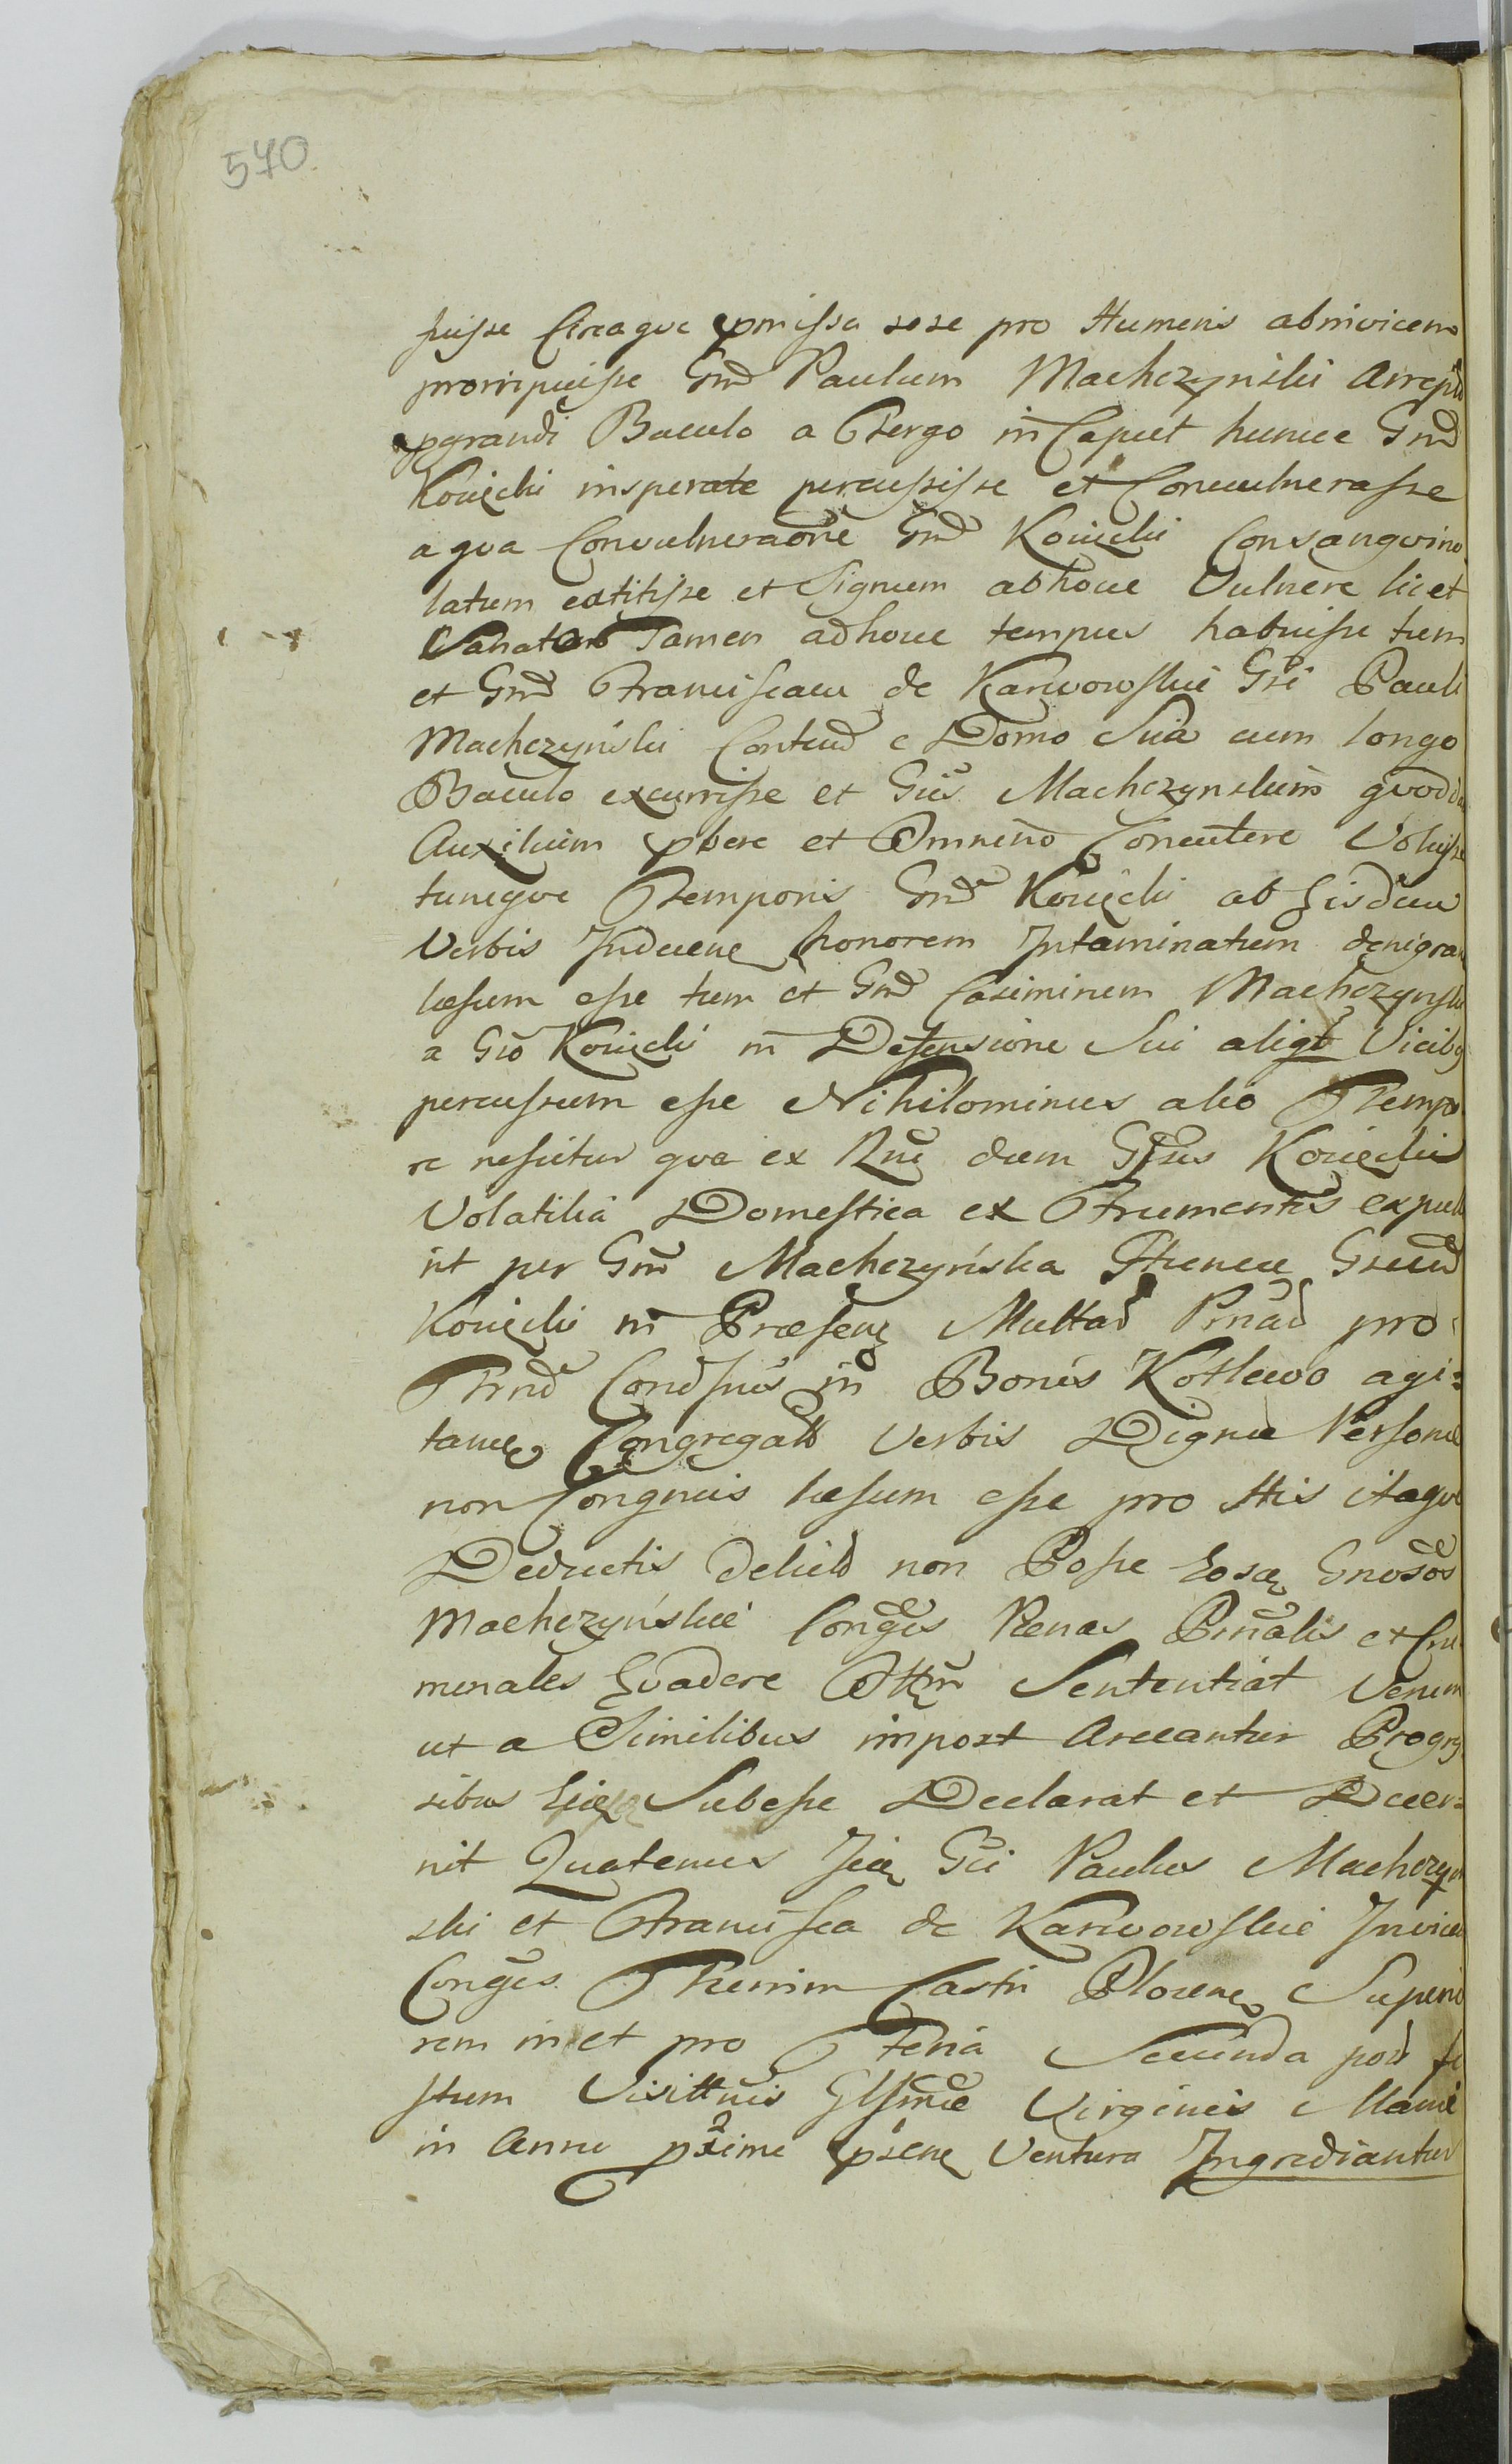 570
fuisse Circaque pmissa sese pro Humeris abinvicem
prorripuisse Gnd Paulum Machczynski Arrepto
pgrandi Baculo a Tergo in Caput hunce Gnd
Kouięcki insperate percussisse et Convulnerasse
a qua Convulneraone Gnd Kouięcki Consangvino
latum extitisse et Signum abhocce Vulnere licet
Sanatum Tamen adhocce tempus habuisse tum
et Gnd Franciscam de Karwowskie Gsi Pauli
Machczynski Conthud e Domo Sua cum longo
Baculo excurrisse et Gsis Machczynskim quodda
Auxilium pbere et Omnino Concutere Voluisse
tuncque Temporis Gnd Kouięcki ab Eisdem
Verbis Indecen honorem Intaminatum denigran
læsum esse tum et Gnd Casimirum Machczynski
a Gso Kouięcki in Defensione Sui aliqt Vicibus
percussum esse Nihilominus alio Tempo
re nescitur qua ex Rne dum Gsus Kouięcki
Volatilia Domestica ex Frumentis expull
it per Gnm Machczyńska Hunce Gsum
Kouięcki in Præsen Multad Pnad pro
Trnd Condsnis in Bonis Kotlewo agi=
tan Congregatt Verbis Dignæ Personæ
non Congruis læsum esse pro His itaque
Deductis Delictd non Posse Eosd Gnosos
Machczyńskie Conges Pænas Pnalis et Cri
minales Evadere Offm Sententiat Verum
ut a Similibus impost Arceantur Progres
sibus Subesse Declarat et Decer=
nit Quatenus Gsi Paulus Machczyn
ski et Francisca de Karwowskie Invicem
Conges Turrim Castri Plocen Superio
rem in et pro Feria Secunda post fe
stum Visittnis Glsmæ Virginis Mariæ
in Anno pxime psene Ventura Ingrediantur